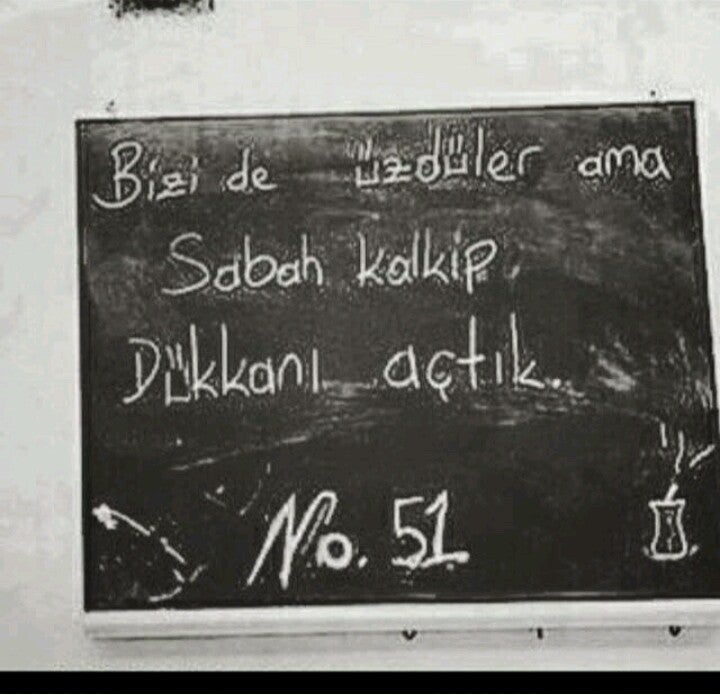 Bizi de üzdüler ama
Sabah kalkip
Dükkanı açtık.
No. 51